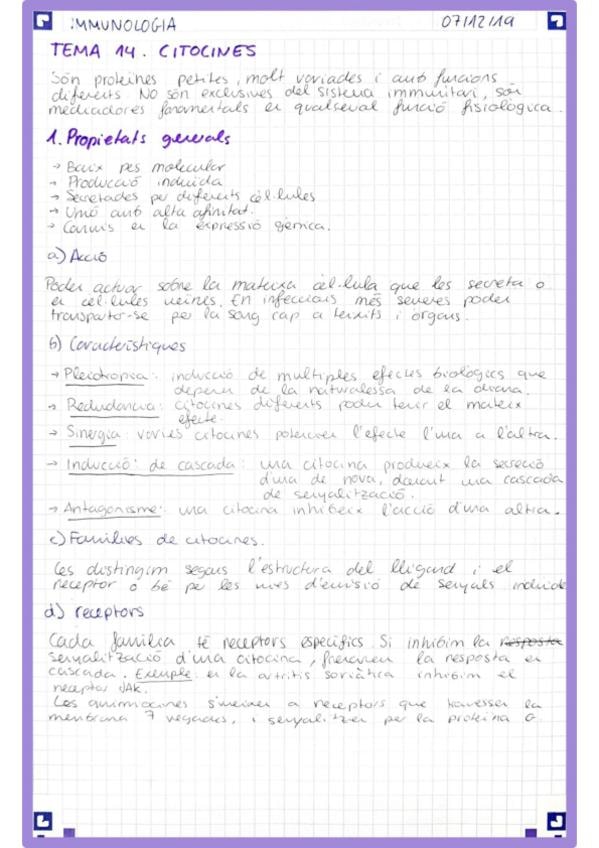 IMMUNOLOGIA 07/12/19
TEMA 14. CITOCINES
Són proteïnes petites, molt variades i amb funcions
diferents. No són exclusives del sistema immunitari, són
mediadores fonamentals en qualsevol funció fisiològica.
1. Propietats generals
→ Baix pes molecular
→ Producció induïda
→ Secretades per diferents cèl·lules
→ Unió amb alta afinitat.
→ Canvis en la expressió gènica.
a) Acció
Poden actuar sobre la mateixa cèl·lula que les secreta o
en cèl·lules veïnes. En infeccions més severes poden
transportar-se per la sang cap a teixits i òrgans.
b) Característiques
→ Pleiotropia: inducció de multiples efectes biològics que
depenen de la naturalessa de la diana.
→ Redundància: citocines diferents poden tenir el mateix
efecte.
→ Sinergia: varies citocines potencien l'efecte l'una a l'altra.
→ Inducció: de cascada: una citocina produeix la secreció
d'una de nova, donant una cascada
de senyalització.
→ Antagonisme: una citocina inhibeix l'acció d'una altra.
c) Famílies de citocines.
Les distingim segons l'estructura del lligand i el
receptor o bé per les vies d'emisió de senyals induïde
d) receptors
Cada família té receptors específics. Si inhibim la resposta
senyalització d'una citocina, frenarem la resposta en
cascada. Exemple: en la artritis soriàtica inhibim el
receptor JAK.
Les quimiocines s'uneixen a receptors que travessen la
membrana 7 vegades, i senyalitzen per la proteïna G.